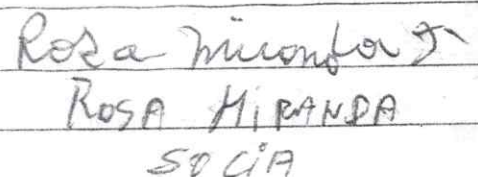 Rosa Miranda
ROSA MIRANDA
SOCIA